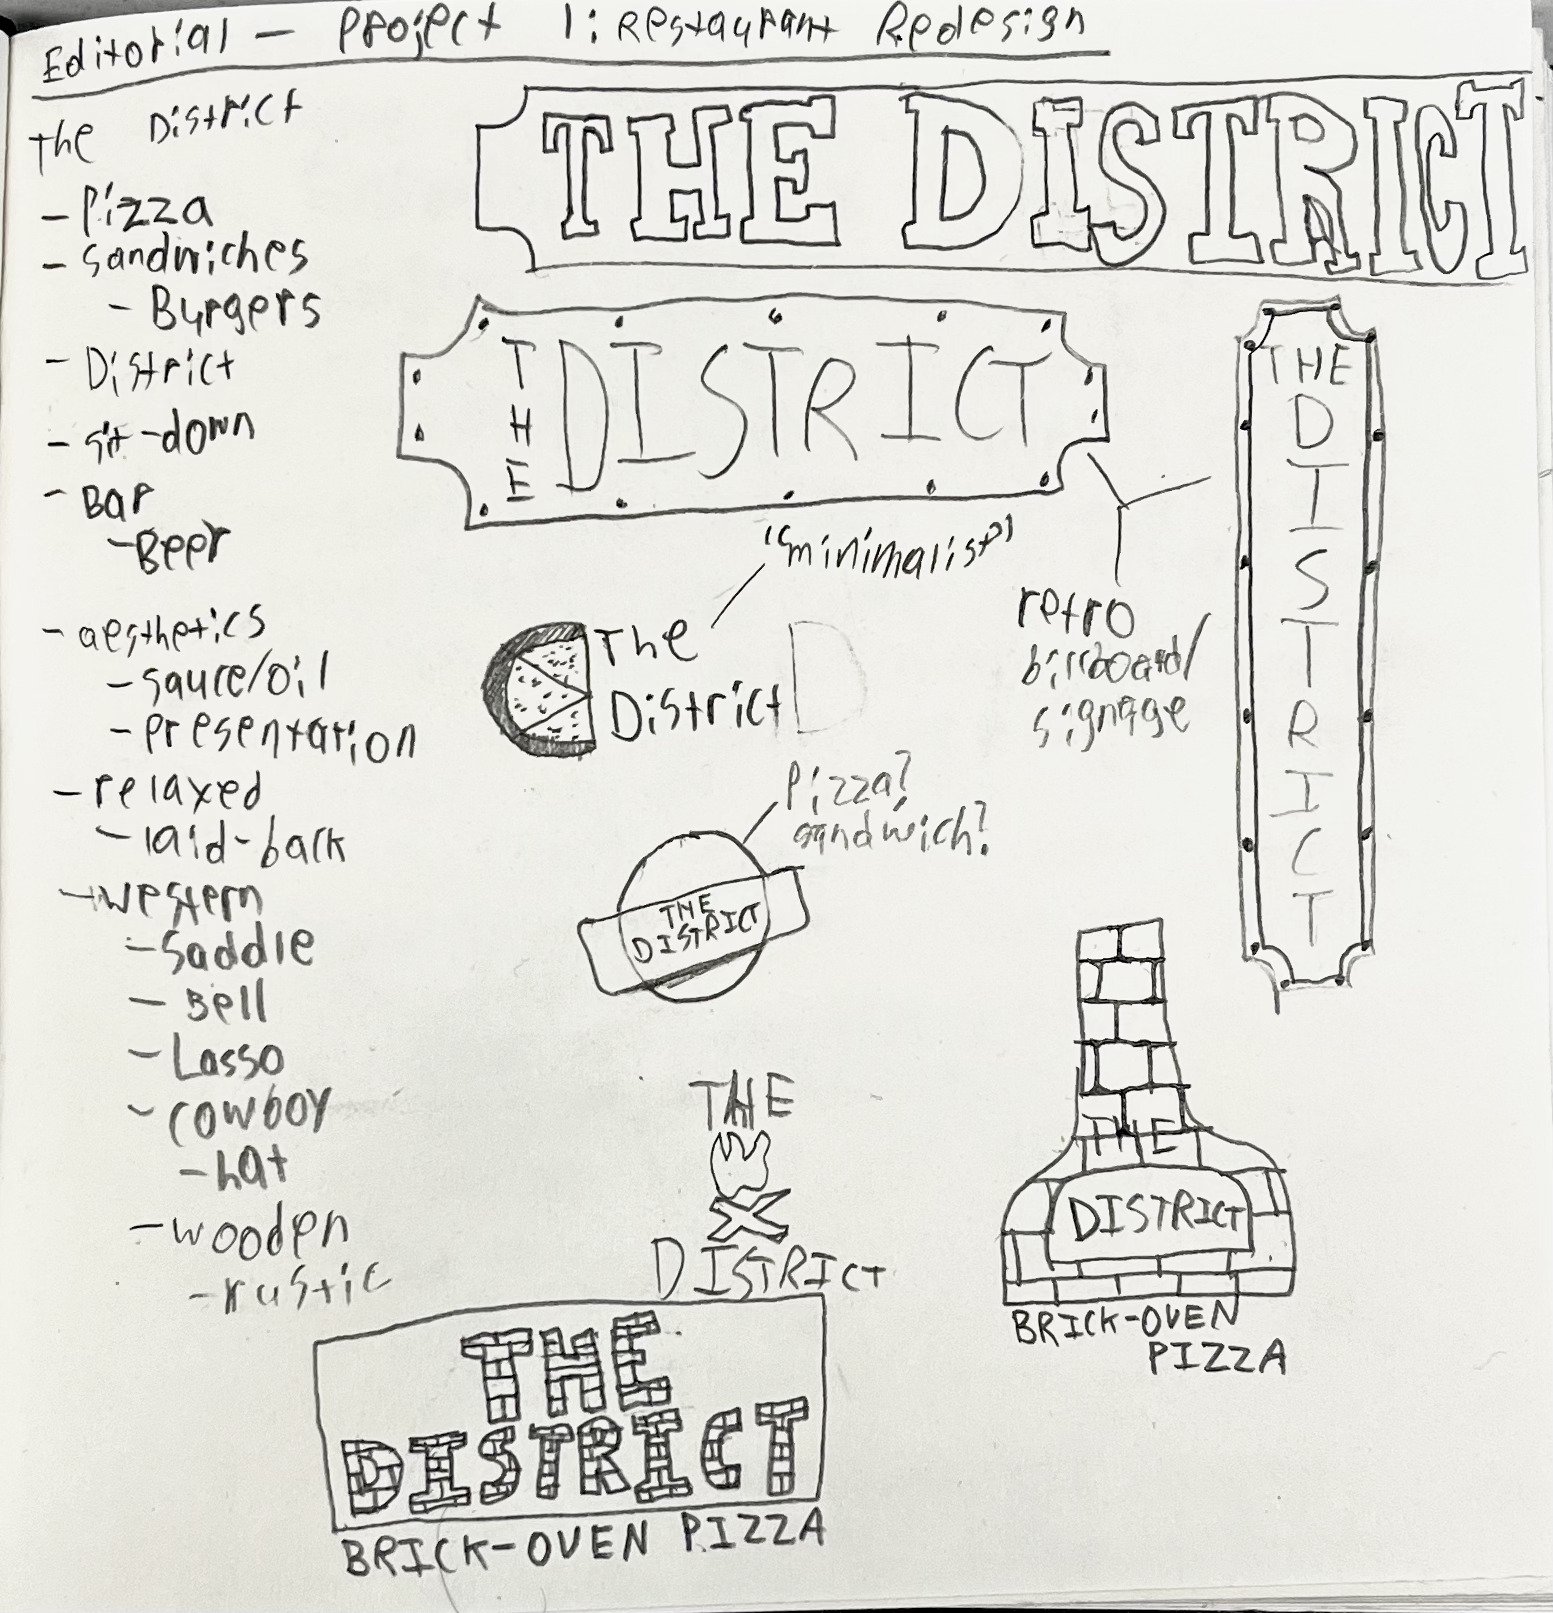 Editorial - Project 1: Restaurant Redesign
The District
- Pizza
- Sandwiches
- Burgers
- District
- sit-down
- Bar
- Beer
- aesthetics
- sauce/oil
- presentation
- relaxed
- laid-back
- western
- Saddle
- Bell
- Lasso
- cowboy
- hat
- wooden
- rustic
THE DISTRICT
THE DISTRICT
THE
DISTRICT
"minimalist"
The
District
D
retro
billboard/
signage
Pizza?
sandwich?
THE
DISTRICT
THE
DISTRICT
THE
DISTRICT
BRICK-OVEN
PIZZA
THE
DISTRICT
BRICK-OVEN PIZZA